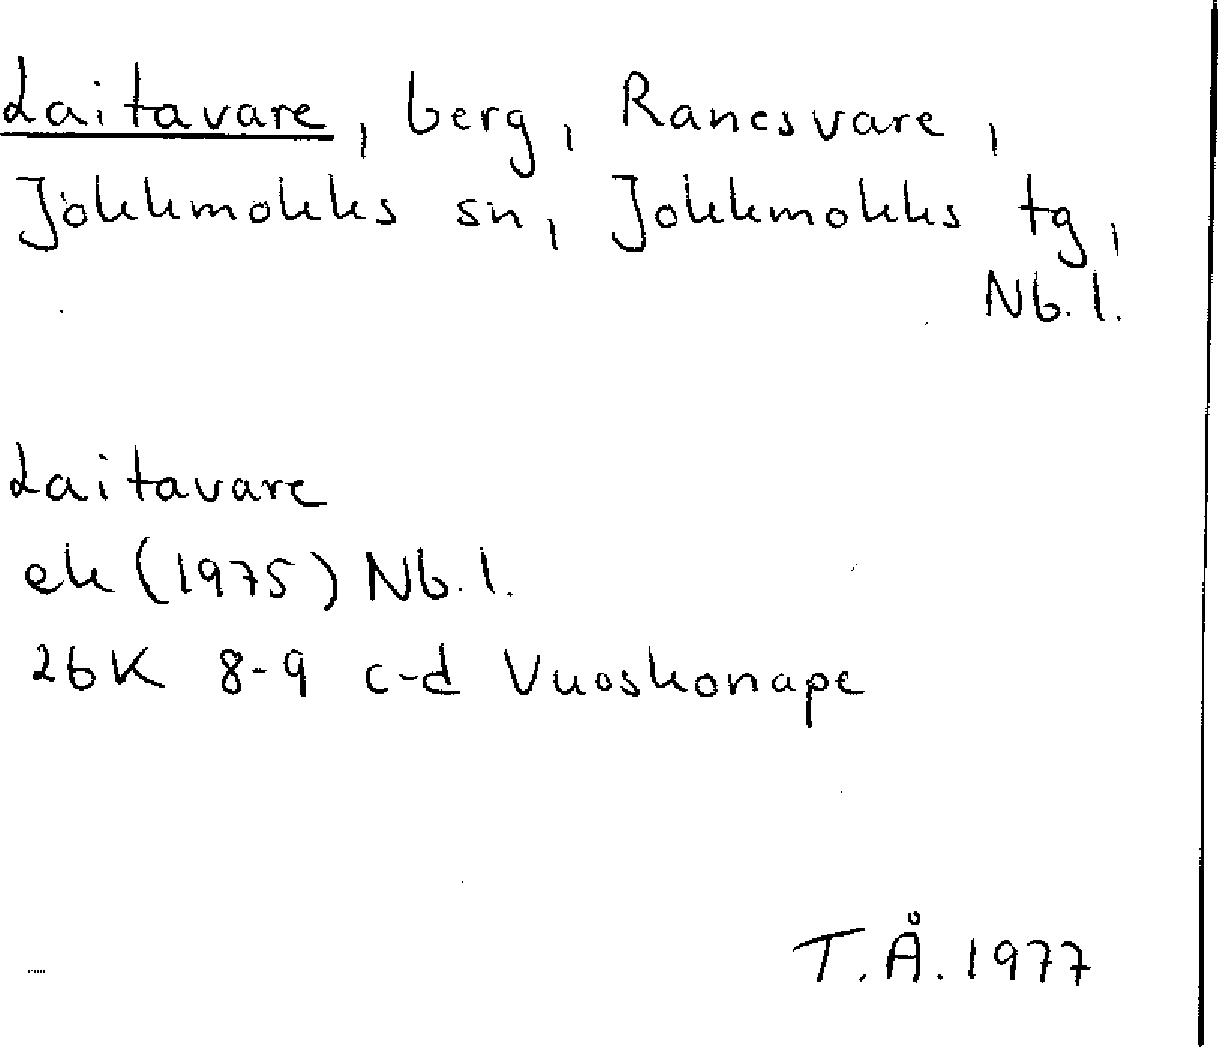 Laitavare, berg, Ranesvare,
Jokkmokks sn, Jokkmokks tg,
Nb. l.
Laitavare
ek (1975) Nb. l.
26K 8-9 c-d Vuoskonape
T.Å. 1977